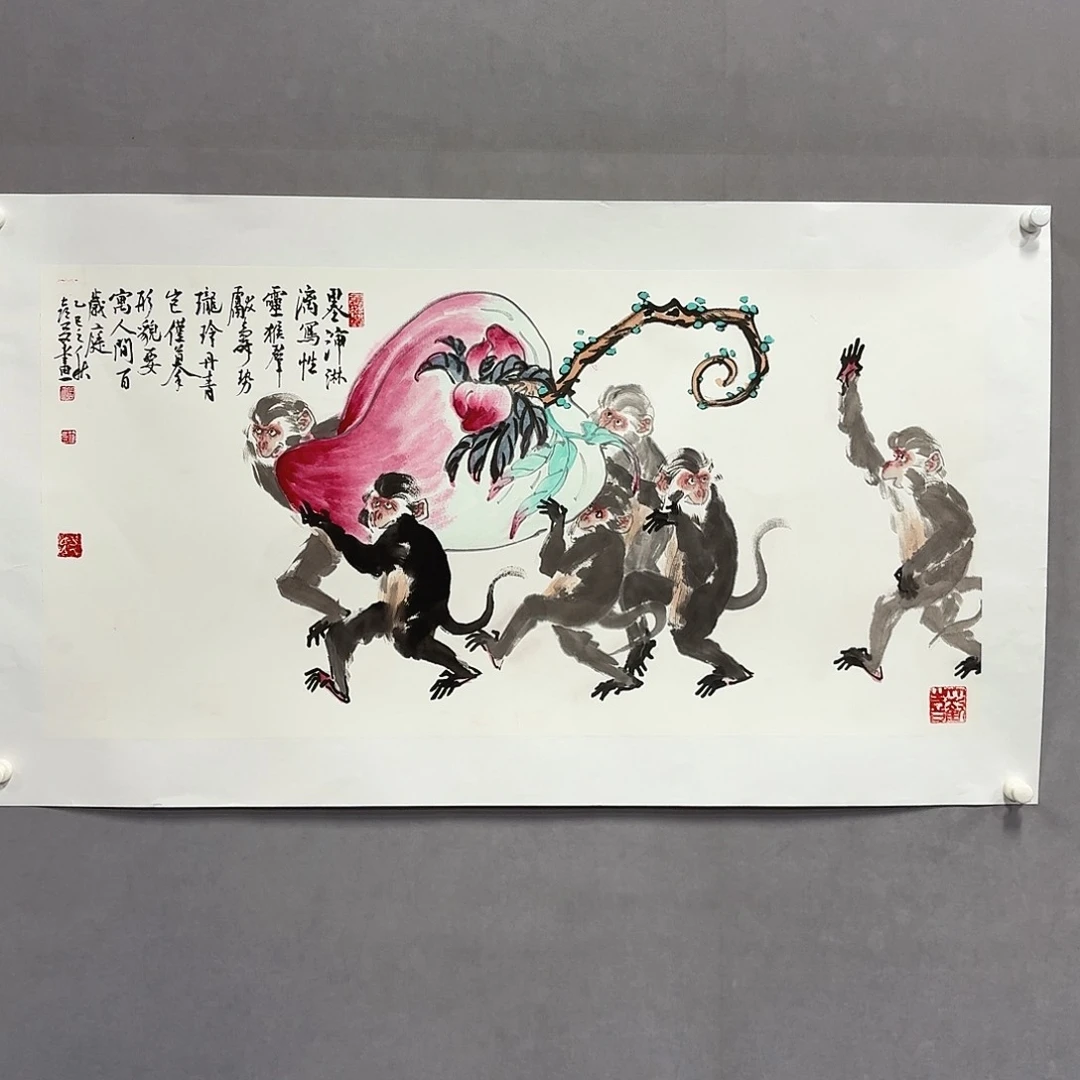 墨沛淋
漓寫性
靈猴羣
獻壽勢
瓏玲丹青
豈僅摹
形貌要
寓人間百
歲庭
乙巳之秋